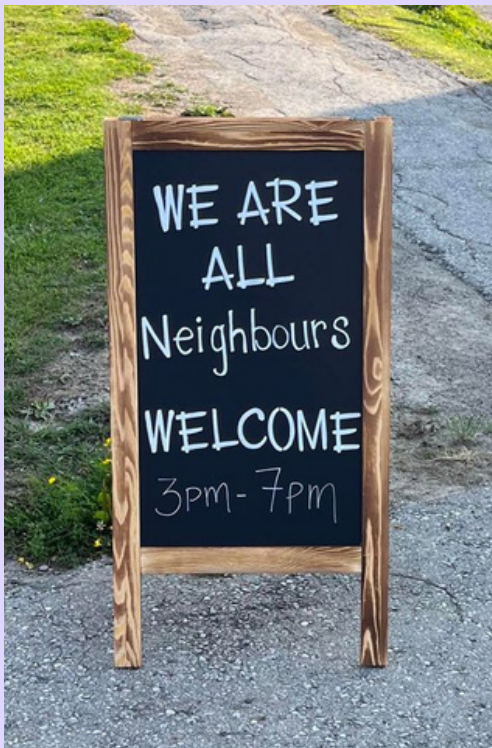 WE ARE
ALL
Neighbours
WELCOME
3pm - 7pm